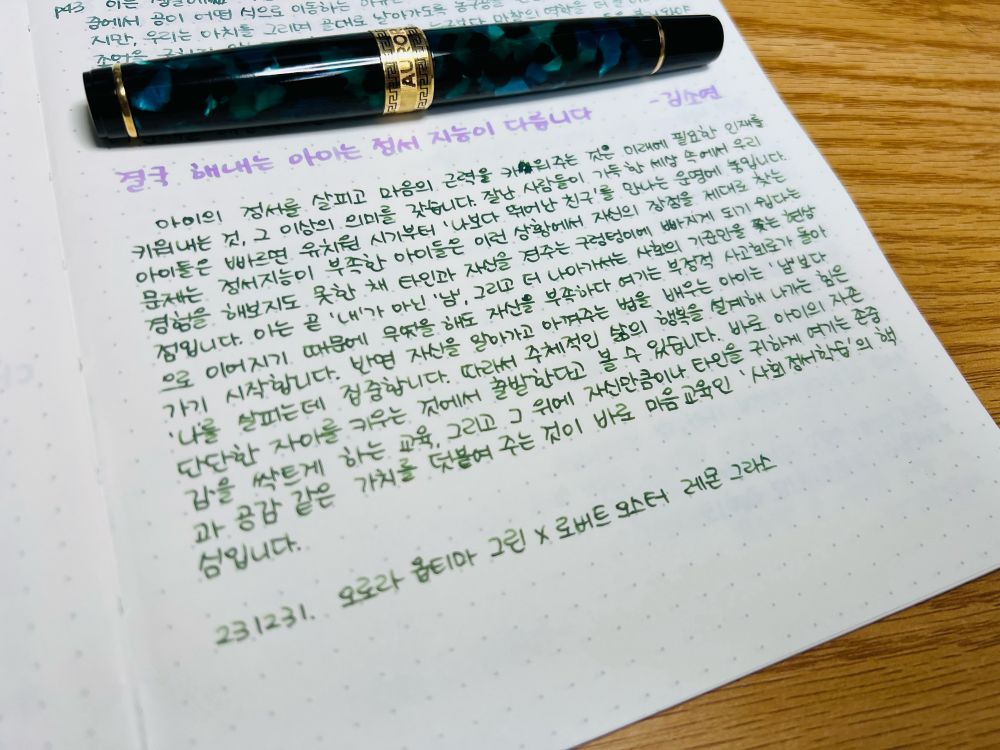 p43
중에서 공이 어떤 식으로 이동하는
지만, 우리는 아치를 그리며 곧대로 날아가도록 농구공을
AURORA
결국 해내는 아이는 정서 지능이 다릅니다 -김소연
아이의 정서를 살피고 마음의 근력을 키워주는 것은 미래에 필요한 인재를
키워내는 것, 그 이상의 의미를 갖습니다. 잘난 사람들이 가득한 세상 속에서 우리
아이들은 빠르면 유치원 시기부터 '나보다 뛰어난 친구'를 만나는 운명에 놓입니다.
문제는 정서지능이 부족한 아이들은 이런 상황에서 자신의 장점을 제대로 찾는
경험을 해보지도 못한 채 타인과 자신을 견주는 구렁텅이에 빠지게 되기 쉽다는
점입니다. 이는 곧 '내'가 아닌 '남', 그리고 더 나아가서는 사회의 기준만을 쫓는 현상
으로 이어지기 때문에 무엇을 해도 자신을 부족하다 여기는 부정적 사고회로가 돌아
가기 시작합니다. 반면 자신을 알아가고 아껴주는 법을 배우는 아이는 '남'보다
'나'를 살피는데 집중합니다. 따라서 주체적인 삶의 행복을 설계해 나가는 힘은
단단한 자아를 키우는 것에서 출발한다고 볼 수 있습니다. 바로 아이의 자존
감을 싹트게 하는 교육, 그리고 그 위에 자신만큼이나 타인을 귀하게 여기는 존중
과 공감 같은 가치를 덧붙여 주는 것이 바로 마음교육인 '사회정서학습'의 핵
심입니다.
231231. 오로라 옵티마 그린 X 로버트 오스터 레몬 그라스